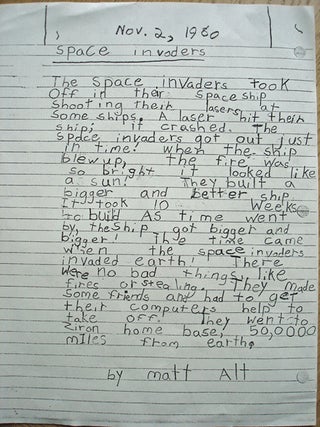 Nov. 2, 1980
Space invaders
The Space invaders took
Off in their spaceship
Shooting their lasers at
Some ships. A laser hit their
ship; it crashed. The
space invaders got out just
in time! when the ship
blew up, the fire was
so bright it looked like
a sun! They built a
bigger and better ship
It took 10 weeks
to build As time went
by, the ship got bigger and
bigger! The time came
when the space invaders
invaded earth! There
were no bad things, like
fires or stealing. They made
some friends and had to get
their computers help to
take off! They went to
ziron home base, 50,0000
miles from earth.
by matt Alt